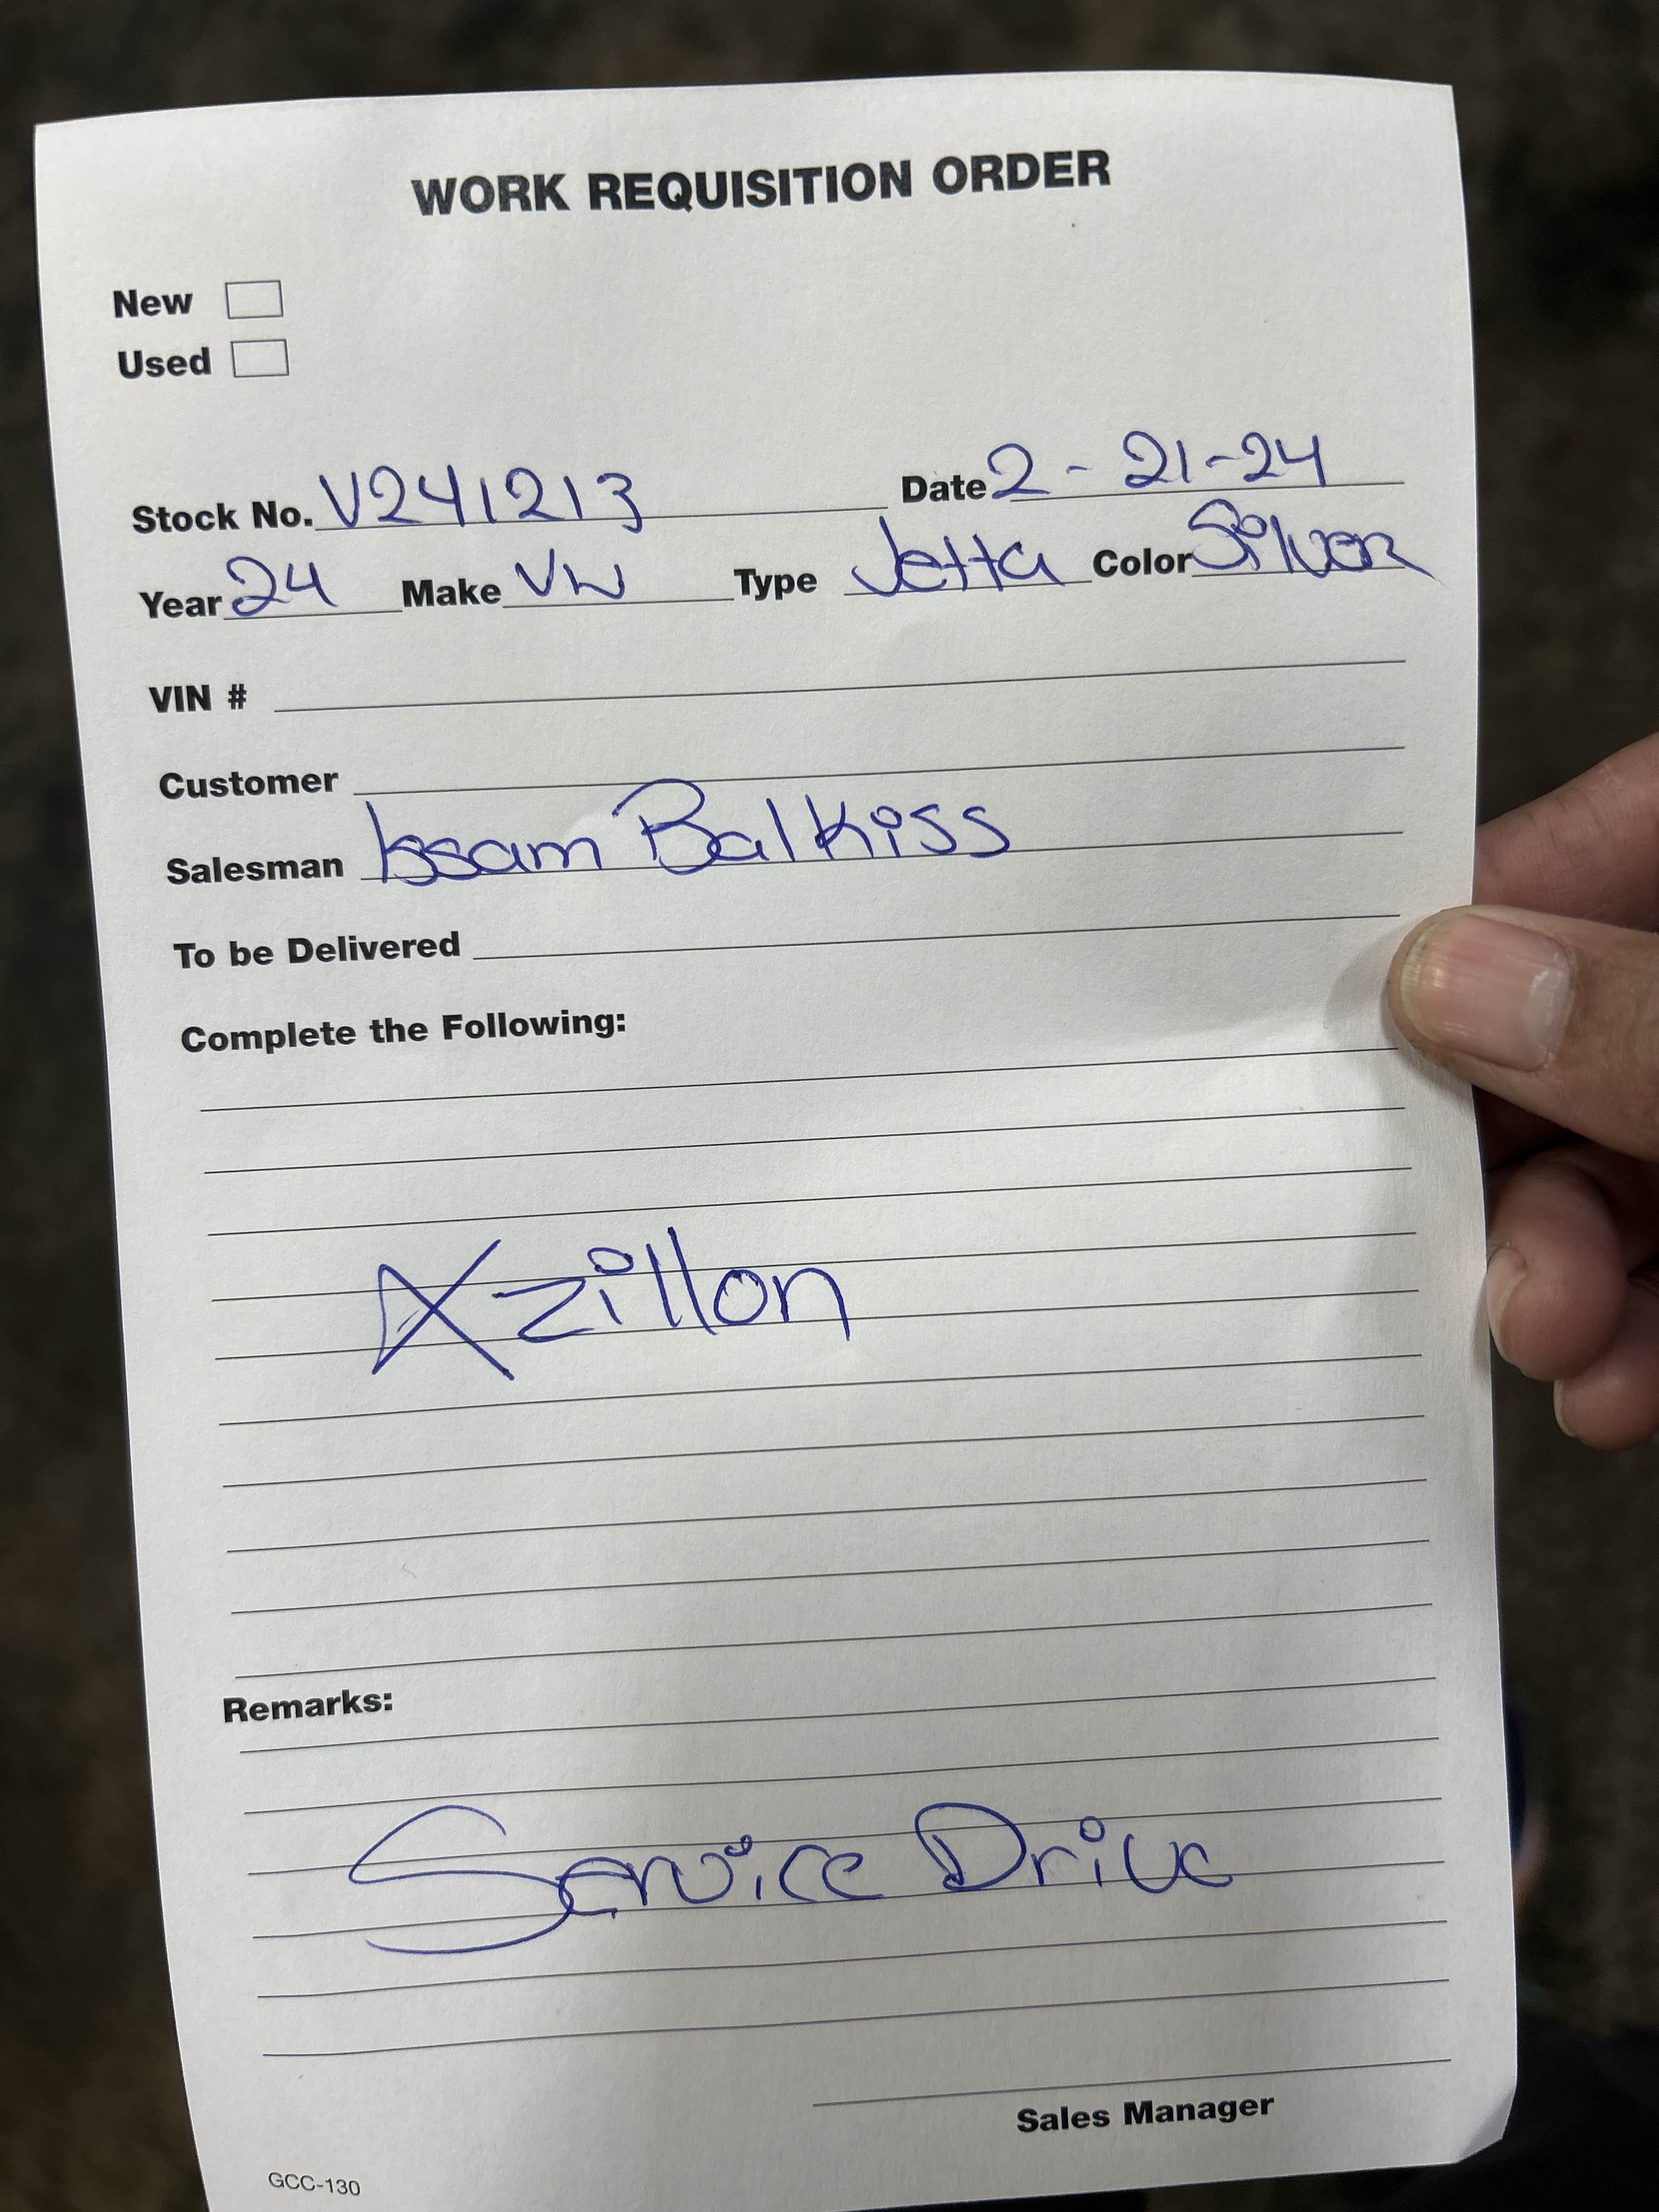 WORK REQUISITION ORDER
New
Used
Stock No. V241213 Date 2-21-24
Year 24 Make VW Type Jetta Color Silver
VIN #
Customer
Salesman Issam Balkiss
To be Delivered
Complete the Following:
Xzillon
Remarks:
Service Drive
Sales Manager
GCC-130